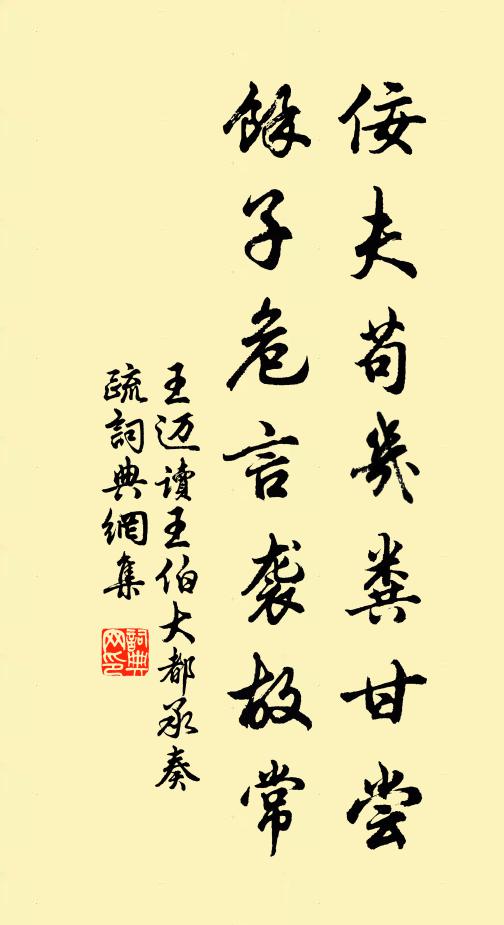 佞夫苟幾粪甘尝
餘子危言袭故常
王迈讀王伯大都承奏
疏詞典網集
詞典网印